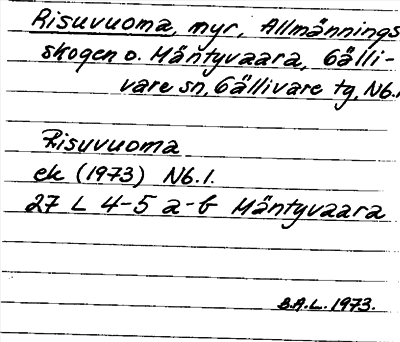 Risuvuoma, myr, Allmännings
skogen o. Mäntyvaara, Gälli-
vare sn, Gällivare tg, Nb.l.
Risuvuoma
ek (1973) Nb.l.
27 L 4-5 a-b Mäntyvaara
B.A.L. 1973.